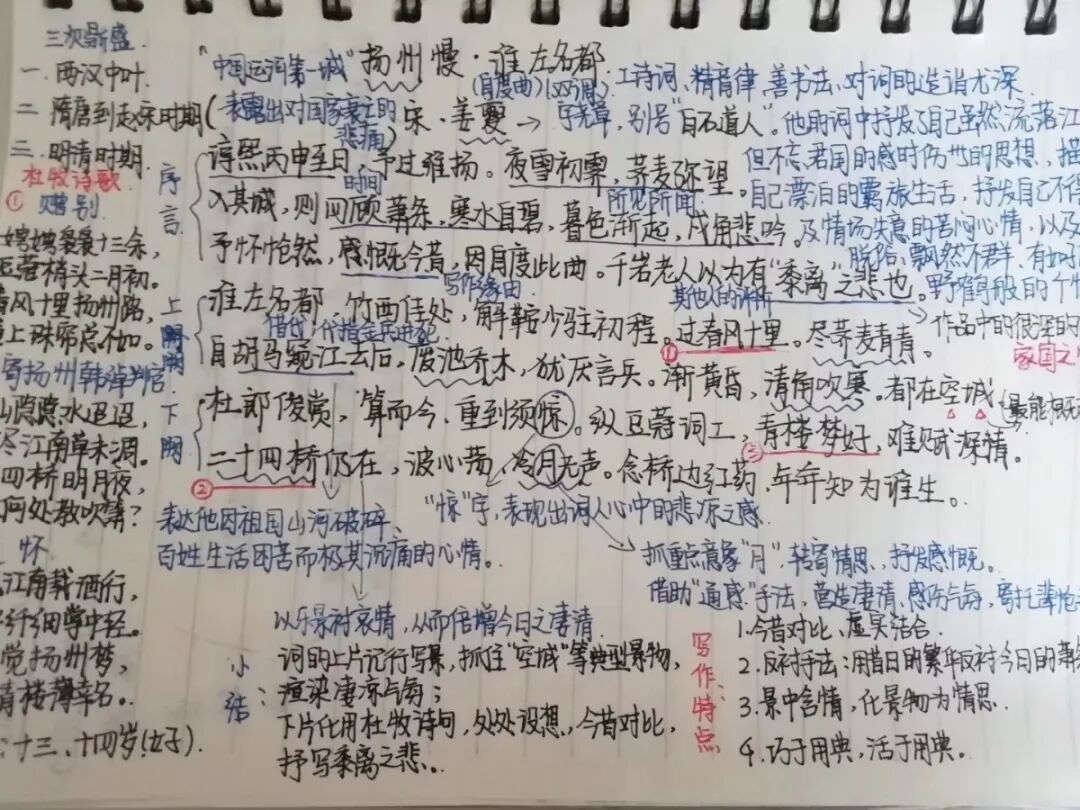 三次鼎盛
一. 西汉中叶.
二 隋唐到赵宋时期
三 明清时期.
杜牧诗歌
① 赠别
娉娉袅袅十三余,
蔻梢头二月初.
风十里扬州路,
上珠帘总不如.
寄扬州韩绰判官
山隐隐水迢迢,
尽江南草未凋.
四桥明月夜,
何处教吹箫?
怀
江南载酒行,
纤细掌中轻.
觉扬州梦,
青楼薄幸名.
: 十三、十四岁(女子).
"中国运河第一城" 扬州慢·淮左名都
(自度曲)(双调) 工诗词, 精音律, 善书法, 对词的造诣尤深
(表露出对国家衰亡的悲痛) 宋·姜夔 → 字尧章, 别号"白石道人"。他的词中抒发了自己虽然流落江
但不忘君国的感时伤世的思想、描
自己漂泊的羁旅生活, 抒发自己不得
及情场失意的苦闷心情, 以及
脱俗、飘然不群, 有如
野鹤般的个性
序言
淳熙丙申至日, 予过维扬。夜雪初霁, 荠麦弥望。
时间
所见所闻
入其城, 则四顾萧条, 寒水自碧, 暮色渐起, 戍角悲吟。
予怀怆然, 感慨今昔, 因自度此曲。千岩老人以为有"黍离"之悲也。
写作缘由
其他人的评价
上阕
淮左名都, 竹西佳处, 解鞍少驻初程。过春风十里。尽荠麦青青。
借代, 代指金兵进犯
①
作品中的很深的
家国之
自胡马窥江去后, 废池乔木, 犹厌言兵。渐黄昏, 清角吹寒。都在空城
最能概
下阕
杜郎俊赏, 算而今、重到须惊。纵豆蔻词工, 青楼梦好, 难赋深情。
③
二十四桥仍在, 波心荡、冷月无声。念桥边红药, 年年知为谁生。
②
表达他因祖国山河破碎、
百姓生活困苦而极其沉痛的心情。
"惊"字, 表现出词人心中的悲凉之感.
抓重点意象"月", 转寄情思、抒发感慨。
借助"通感"手法, 营造凄清、感伤气氛, 寄托悲怆
以乐景衬哀情, 从而倍增今日之凄清
小结:
词的上片记行写景, 抓住"空城"等典型景物,
渲染凄凉气氛;
下片化用杜牧诗句, 处处设想, 今昔对比,
抒写黍离之悲。
写作特点
1. 今昔对比, 虚实结合.
2. 反衬手法: 用昔日的繁华反衬今日的萧
3. 景中含情, 化景物为情思.
4. 巧于用典, 活于用典。